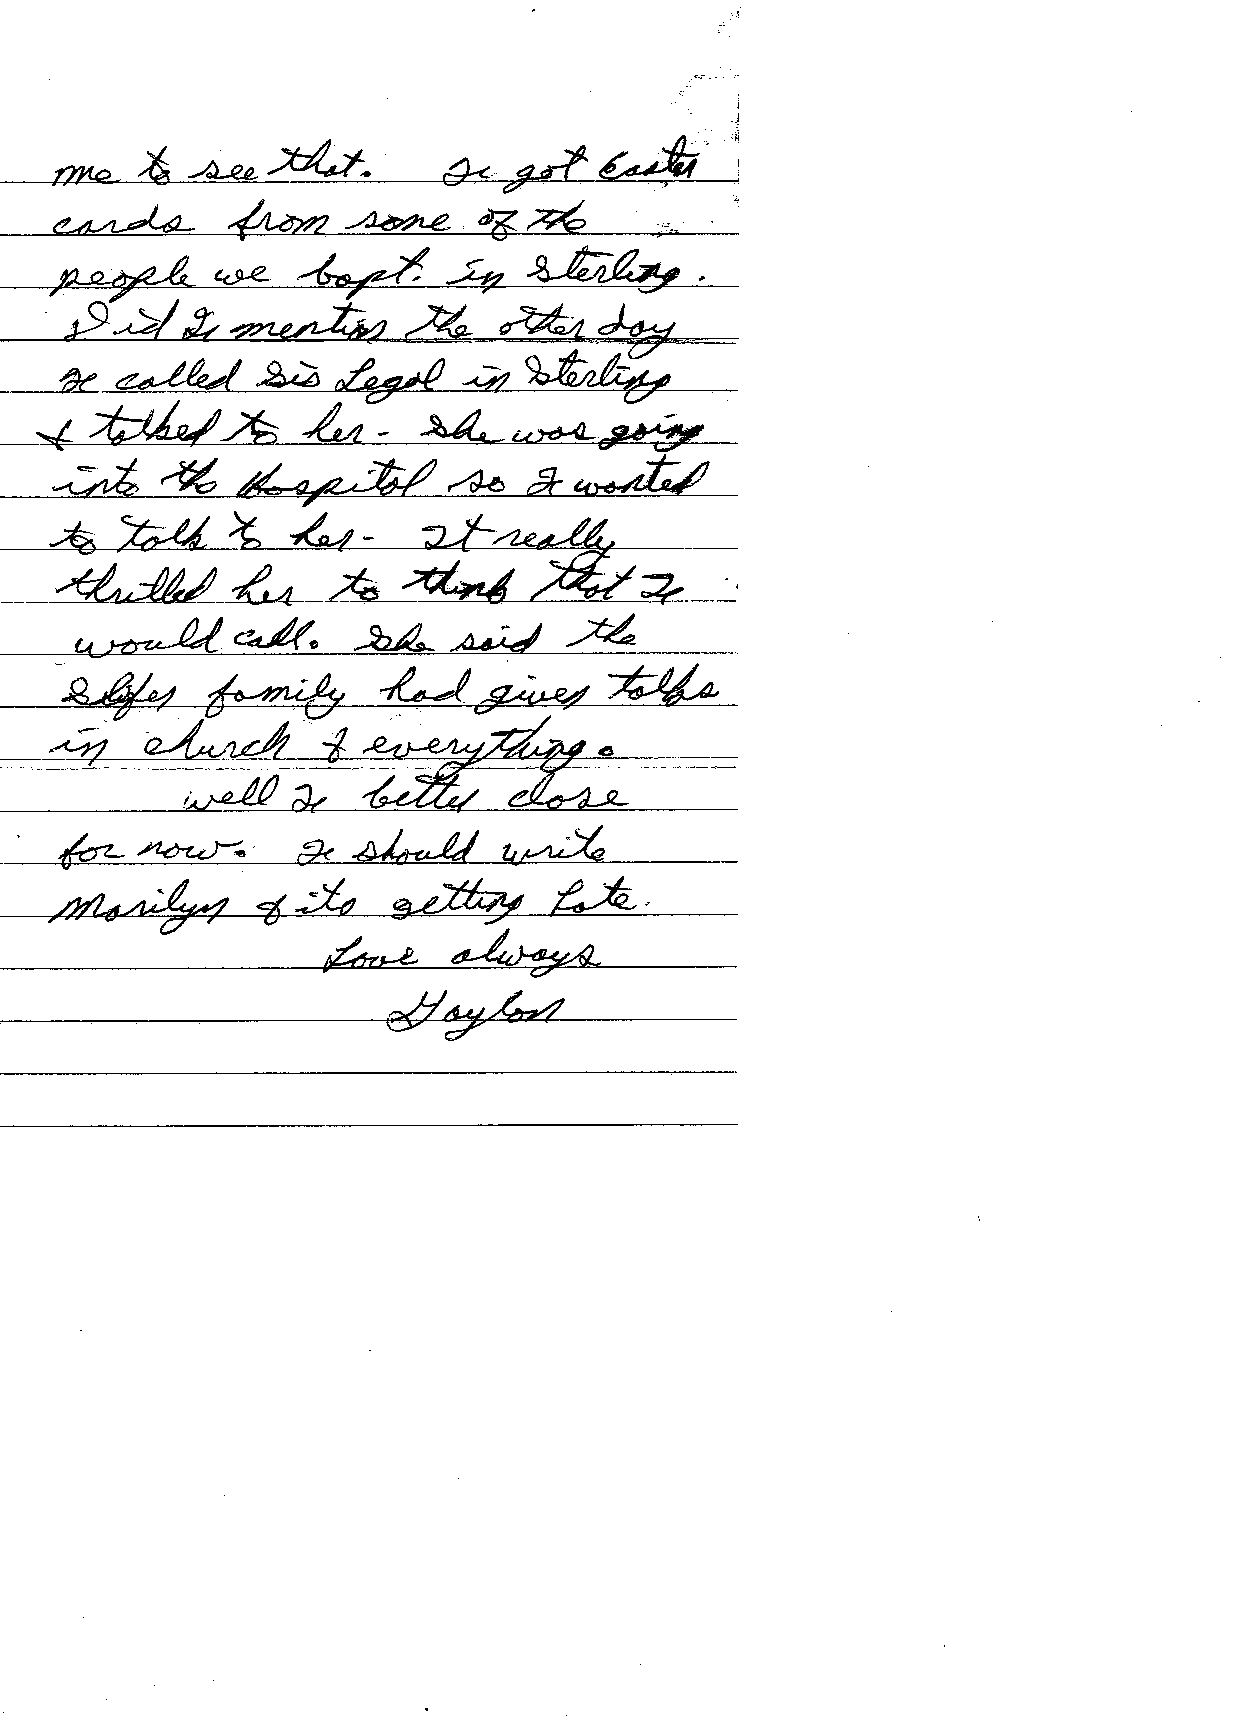 me to see that. I got Easter
cards from some of the
people we bapt. in Sterling.
Did I mention the other day
I called Sis Legal in Sterling
& talked to her - She was going
into the Hospital so I wanted
to talk to her - It really
thrilled her to think that I
would call. She said the
family had given talks
in church & everything.
well I better close
for now. I should write
Marilyn & its getting late.
Love always
Gaylon